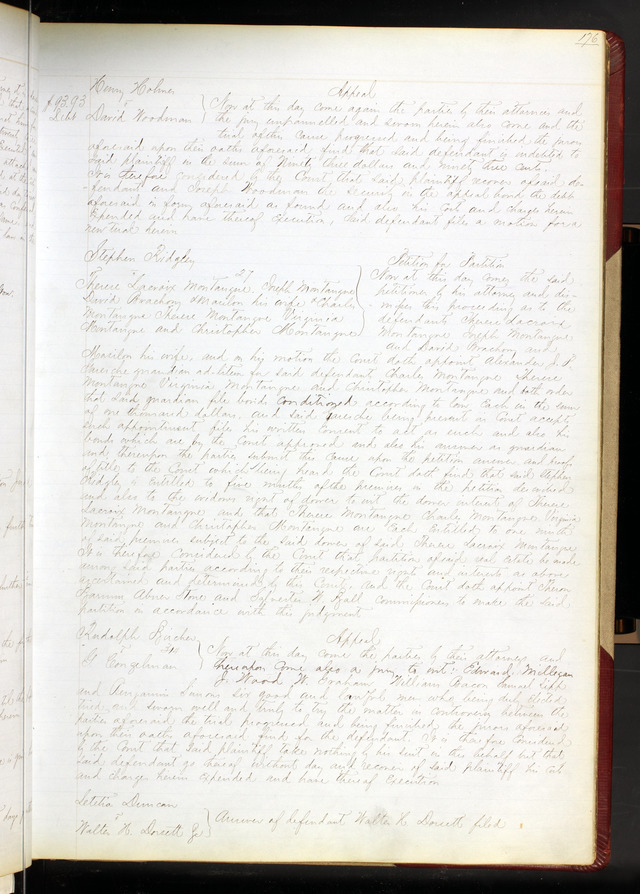 176
Henry Holmes Appeal
$93.93 vs Now at this day come again the parties by their attornies and
Debt David Woodman the jury empannelled and sworn herein also come and the
trial of this cause progressed and being finished the jurors
aforesaid upon their oaths aforesaid find that said defendant is indebted to
said plaintiff in the sum of Ninety three dollars and ninety three cents.
It is therefore considered by the Court that said plaintiff recover of said de-
fendant and Joseph Woodman the security in the appeal bond the debt
aforesaid in form aforesaid as found and also his costs and charges herein
expended and have thereof execution, said defendant files a motion for a
new trial herein
Stephen Ridgley Petition for Partition
vs Now at this day comes the said
Therese Lacroix Montangue, Joseph Montangue petitioner by his attorney and dis-
David Brachony & Marilon his wife & Charles misses this proceeding as to the
Montangue Therese Montangue Virginia defendants Therese Lacroix
Montangue and Christopher Montangue Montangue Joseph Montangue
and David and
Marilon his wife, and on his motion the Court doth appoint Alexander J. P.
guardian ad litem for said defendants Charles Montangue Therese
Montangue Virginia Montangue and Christopher Montangue and doth order
that said guardian file bond conditioned according to law, Each in the sum
of one thousand dollars, and said being present in Court accepts
such appointment, files his written consent to act as such and also his
bonds which are by the Court approved and also his answer as guardian
and thereupon the parties submit this cause upon the petition answer and proofs
of title to the Court which being heard the Court doth find that said Stephen
Ridgley is entitled to five ninths of the premises in the petition described
and also to the widows right of dower to wit the dower interest of Therese
Lacroix Montangue and that Therese Montangue Charles Montangue Virginia
Montangue and Christopher Montangue are each entitled to one ninth
of said premises subject to the said dower of said Therese Lacroix Montangue
It is therefore considered by the Court that partition of said real estate be made
among said parties according to their respective rights and interests as above
ascertained and determined by this Court, and the Court doth appoint
Abner Stone and Sylvester W. Ball commissioners to make the said
partition in accordance with this judgment
Rudolph Bircher Appeal
vs Now at this day come the parties by their attorneys and
St Engelman thereupon come also a jury to wit: Edward Milligan
J. Wood W. Graham William Bacon Samuel
and Benjamin six good and lawful men who being duly elected
tried and sworn well and truly to try the matter in controversy between the
parties aforesaid the trial progressed and being finished, the jurors aforesaid
upon their oaths aforesaid find for the defendant. It is therefore considered
by the Court that said plaintiff take nothing by his suit in this behalf but that
said defendant go thereof without day and recover of said plaintiff his costs
and charges herein expended and have thereof Execution
Letetia Duncan
vs Answer of defendant Walter H. Dorsett filed
Walter H. Dorsett Jr